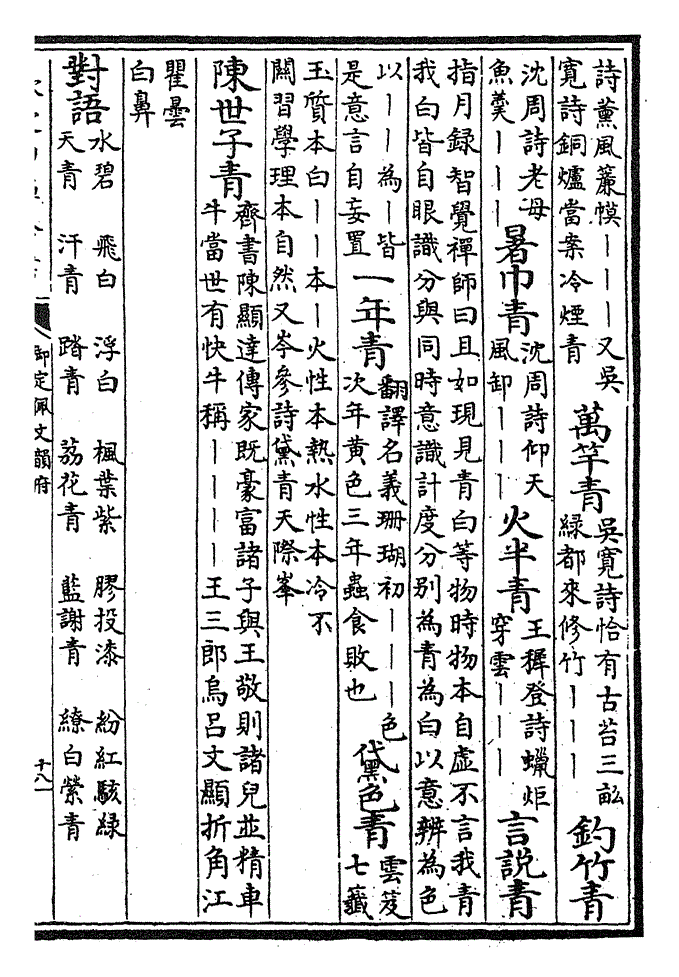 詩薰風簾幙丨丨丨又吳
寛詩銅爐當案冷煙青
萬竿青
吳寛詩恰有古苔三畝
緑都來修竹丨丨丨
釣竹青
沈周詩老母
魚羹丨丨丨
暑巾青
沈周詩仰天
風卸丨丨丨
火半青
王穉登詩蠟炬
穿雲丨丨丨
言説青
指月録智覺禪師曰且如現見青白等物時物本自虛不言我青
我白皆自眼識分與同時意識計度分别為青為白以意辨為色
以丨丨為丨皆
是意言自妄置
一年青
翻譯名義珊瑚初丨丨丨色
次年黄色三年蟲食敗也
黛色青
雲笈
七籤
玉質本白丨丨本丨火性本熱水性本冷不
關習學理本自然又岑參詩黛青天際峯
陳世子青
齊書陳顯達傳家既豪富諸子與王敬則諸兒並精車
牛當世有快牛稱丨丨丨丨王三郎烏吕文顯折角江
瞿曇
白鼻
對語
水碧 飛白 浮白 楓葉紫 膠投漆 紛紅駭緑
天青 汗青 踏青 荔花青 藍謝青 繚白縈青
御定佩文韻府